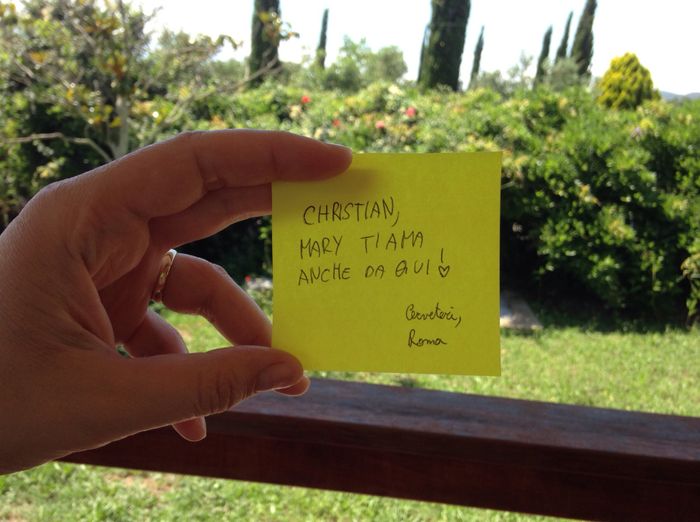 CHRISTIAN,
MARY TI AMA
ANCHE DA QUI!
Cerveteri,
Roma